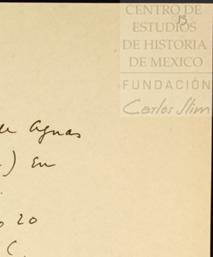 CENTRO DE
ESTUDIOS
DE HISTORIA
DE MEXICO
FUNDACIÓN
Carlos Slim
de aguas
) en
20
C.